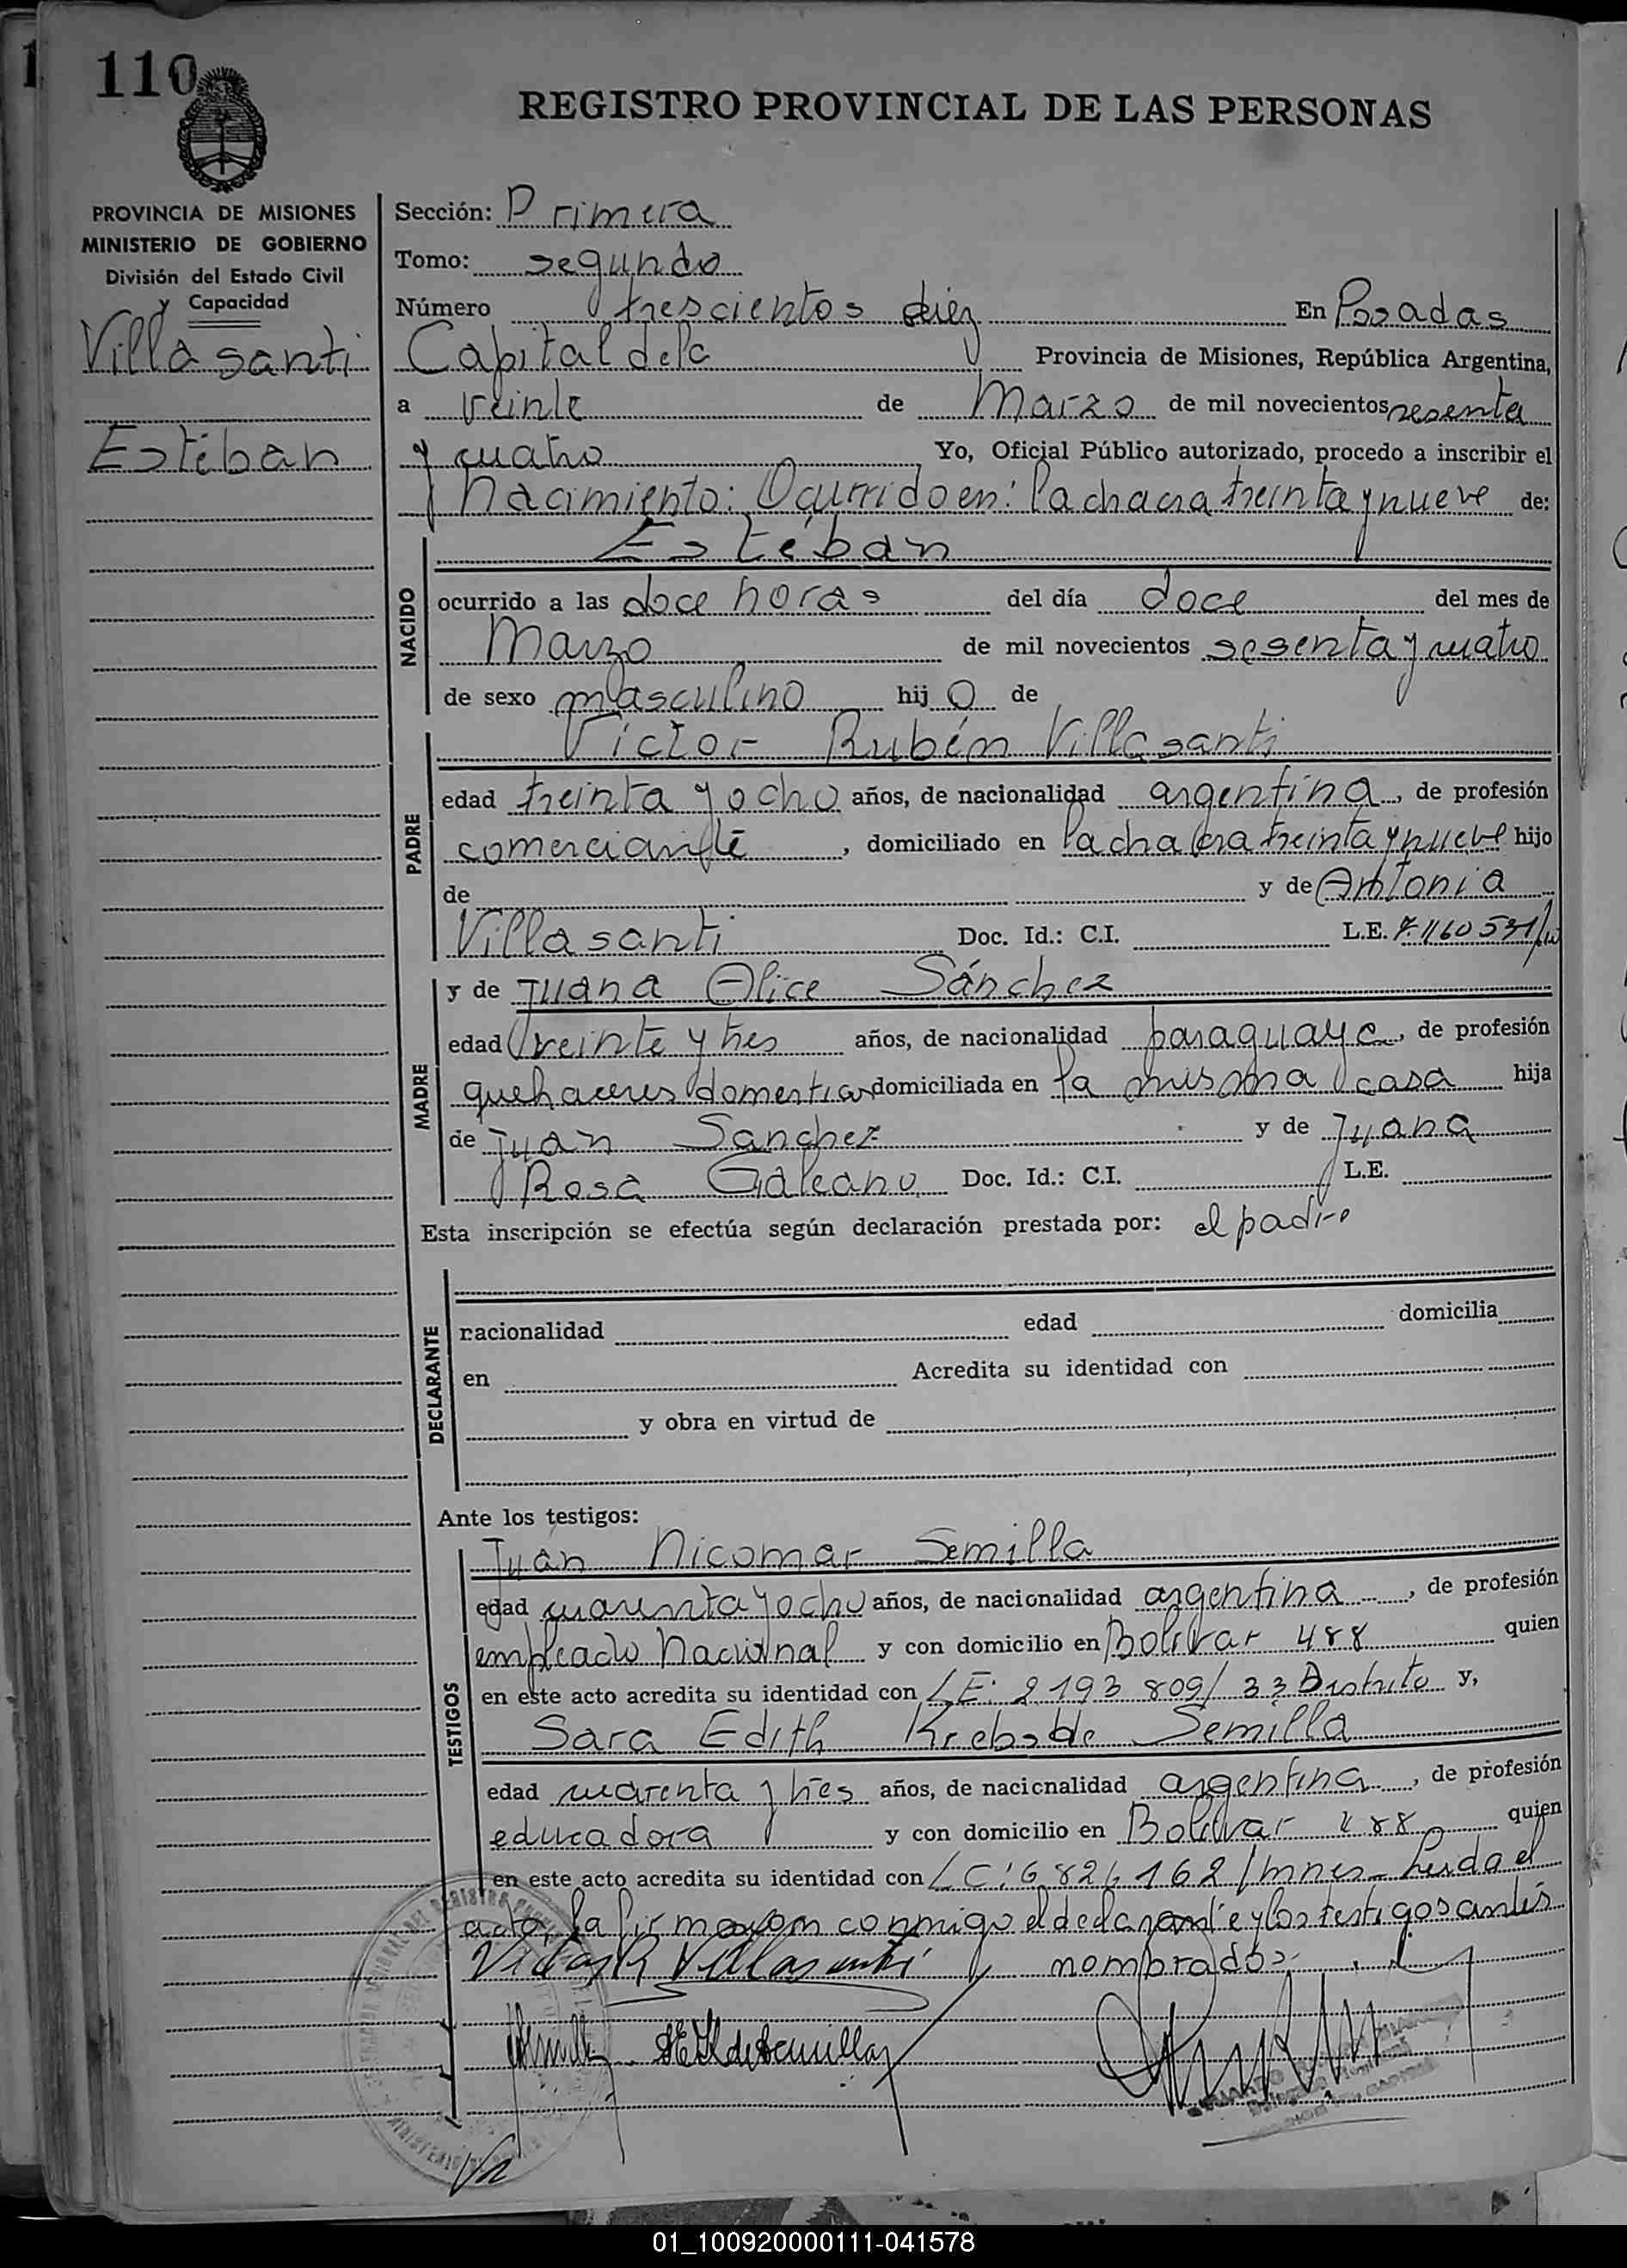 110
REGISTRO PROVINCIAL DE LAS PERSONAS
PROVINCIA DE MISIONES
MINISTERIO DE GOBIERNO
División del Estado Civil
y Capacidad
Villasanti
Esteban
Sección: Primera
Tomo: segundo
Número trescientos diez En Posadas
Capital de la Provincia de Misiones, República Argentina,
a veinte de Marzo de mil novecientos sesenta
y cuatro Yo, Oficial Público autorizado, procedo a inscribir el
nacimiento: Ocurrido en: la chacra treinta y nueve de:
Esteban
NACIDO
ocurrido a las doce horas del día doce del mes de
Marzo de mil novecientos sesenta y cuatro
de sexo masculino hij o de
Víctor Rubén Villasanti
PADRE
edad treinta y ocho años, de nacionalidad argentina, de profesión
comerciante, domiciliado en la chacra treinta y nueve hijo
de y de Antonia
Villasanti Doc. Id.: C.I. L.E.
y de Juana Alice Sánchez
MADRE
edad veinte y tres años, de nacionalidad paraguaya, de profesión
quehaceres domesticos domiciliada en la misma casa hija
de Juan Sanchez y de Juana
Rosa Galeano Doc. Id.: C.I. L.E.
Esta inscripción se efectúa según declaración prestada por: el padre
DECLARANTE
nacionalidad edad domicilia
en Acredita su identidad con
y obra en virtud de
Ante los testigos:
Juan Nicomar Semilla
TESTIGOS
edad cuarenta y ocho años, de nacionalidad argentina, de profesión
empleado nacional y con domicilio en Bolivar 488 quien
en este acto acredita su identidad con L.E. 2193809/33 Distrito y,
Sara Edith Krebs de Semilla
edad cuarenta y tres años, de nacionalidad argentina, de profesión
educadora y con domicilio en Bolivar 488 quien
en este acto acredita su identidad con LC: Leida el
acta, la firmaron conmigo el declarante y los testigos antes
Victor R Villasanti nombrados.
01_100920000111-041578